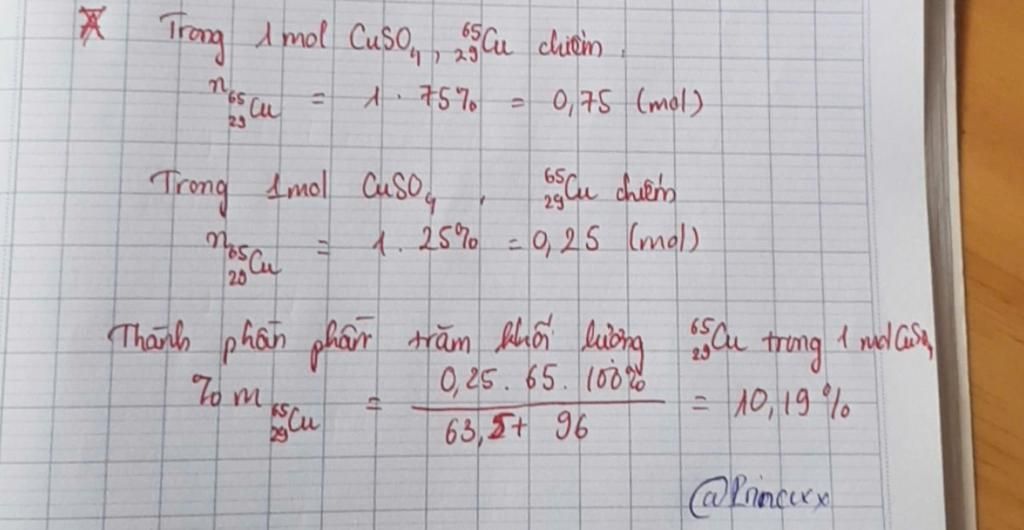 Trong 1 mol CuSO₄, ⁶⁵₂₉Cu chiếm.
n ⁶⁵₂₉Cu = 1 . 75% = 0,75 (mol)
Trong 1mol CuSO₄, ⁶⁵₂₉Cu chiếm
n ⁶⁵₂₉Cu = 1 . 25% = 0,25 (mol)
Thành phần phần trăm khối lượng ⁶⁵₂₉Cu trong 1 mol CuSO₄
%m ⁶⁵₂₉Cu = 0,25 . 65 . 100% / 63,5 + 96 = 10,19%